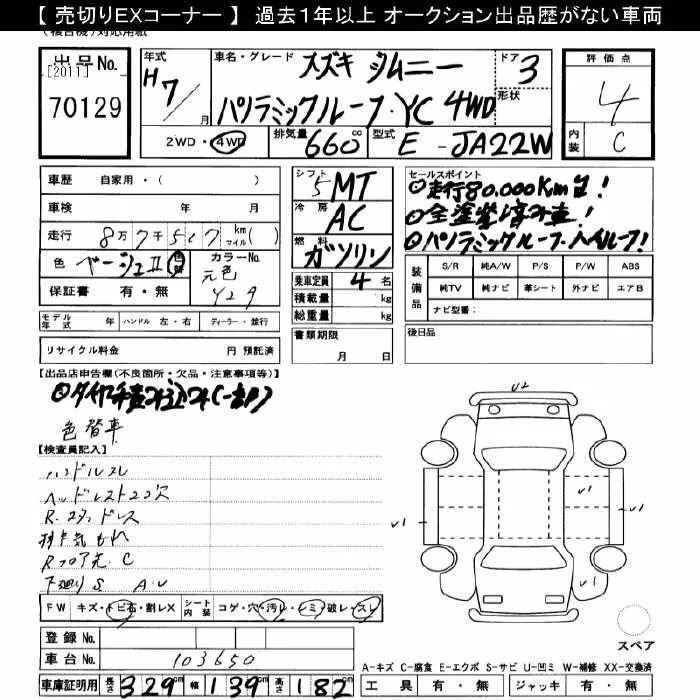 【 売切りEXコーナー 】 過去１年以上 オークション出品歴がない車両
(複合機)対応用紙
出品No. [2011] 70129
年式 H7/月
車名・グレード スズキ ジムニー
パノラミックルーフ・YC 4WD
ドア 3 形状
評価点 4
内装 C
2WD・4WD 排気量 660cc 型式 E - JA22W
車歴 自家用・( )
車検 年 月
走行 8万7千507 km マイル( )
色 ベージュII 色替 カラーNo. 元色 Y29
保証書 有・無
シフト 5MT
冷房 AC
燃料 ガソリン
乗車定員 4名
積載量 kg
総重量 kg
セールスポイント
◎走行80,000Km台!
◎全塗装済み車!
◎パノラミックルーフ・ハイルーフ!
装備品 S/R 純A/W P/S P/W ABS
純TV 純ナビ 革シート 外ナビ エアB
ナビ型番:
モデル年式 年 ハンドル 左・右 ディーラー・並行
書類期限 月 日
後日品
リサイクル料金 円 預託済
【出品店申告欄(不良箇所・欠品・注意事項等)】
◎タイヤ積み込み(一部)
色替車
【検査員記入】
ハンドルスレ
ヘッドレスト2コ欠
R.スタッドレス
排キ気もれ
Rフロア先.C
下廻りS A.U
U2
U1
U1
U1
U1
FW キズ・トビ石・割レX シート内装 コゲ・穴・汚レ・シミ・破レ・スレ
登録No.
車台No. 103650
車庫証明用 長さ 329cm 幅 139cm 高さ 182cm
スペア
A-キズ C-腐食 E-エクボ S-サビ U-凹ミ W-補修 XX-交換済
工具 有・無 ジャッキ 有・無